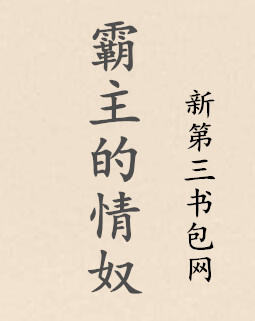 霸主的情奴
新第三书包网